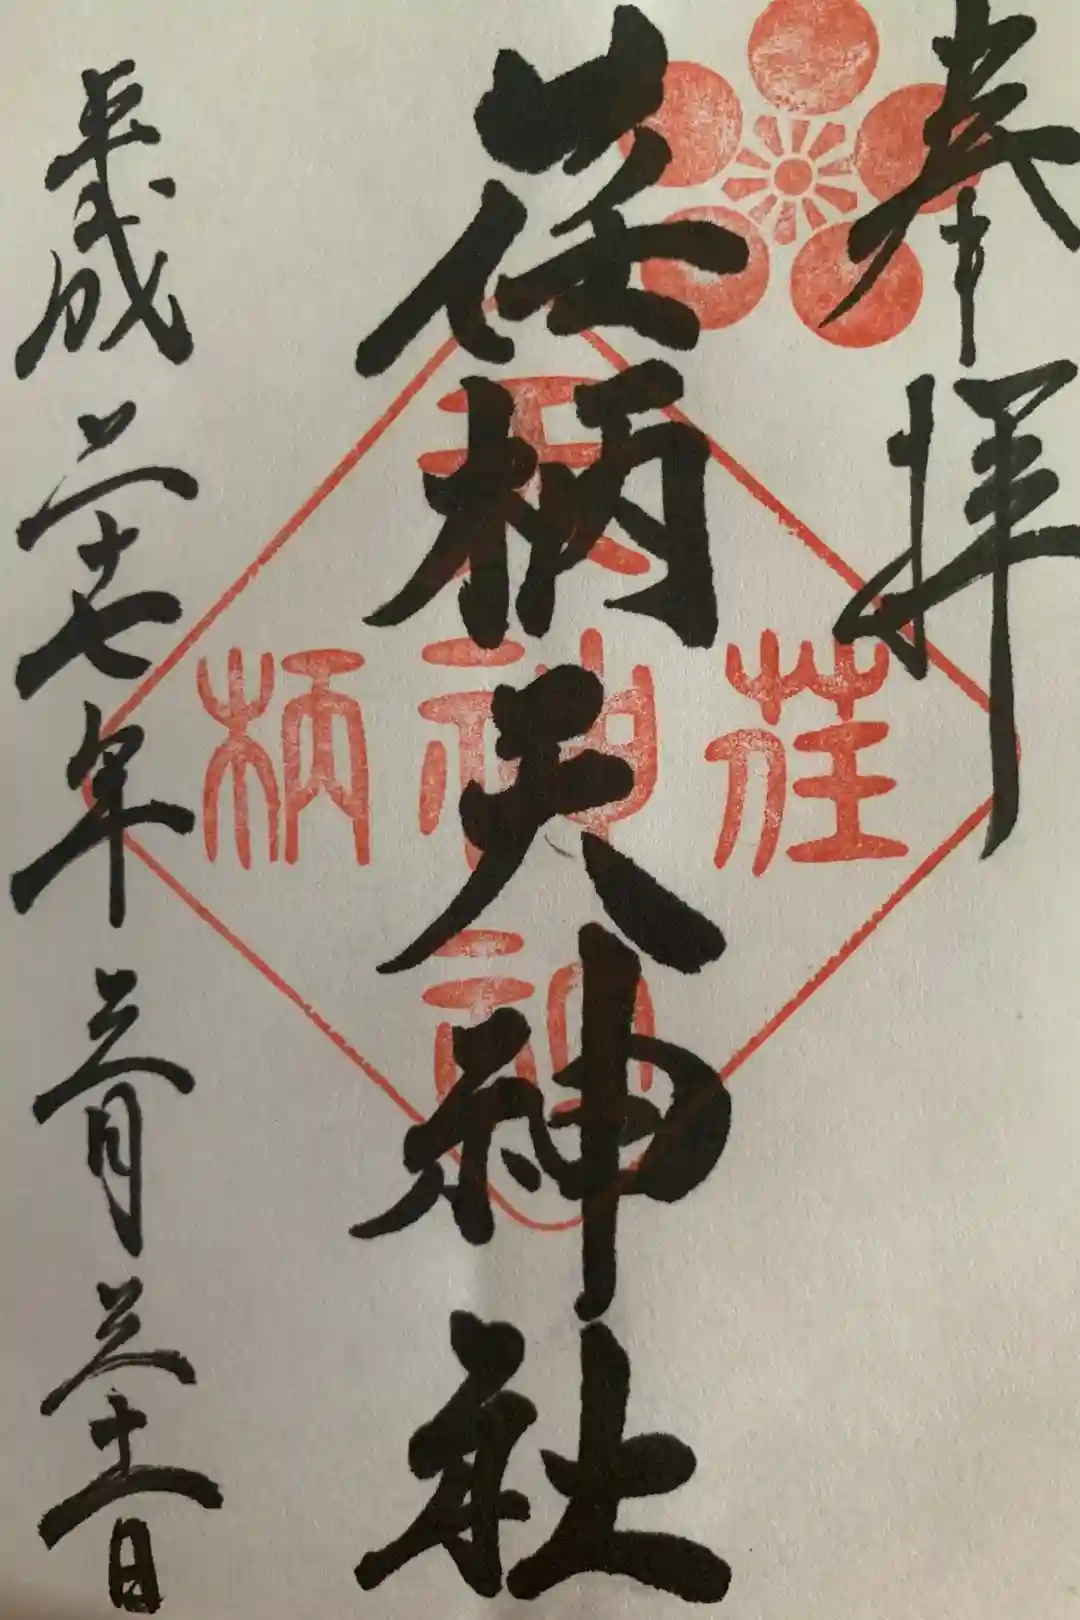 奉拝
荏柄天神社
平成二十七年三月三十一日
荏柄天神社